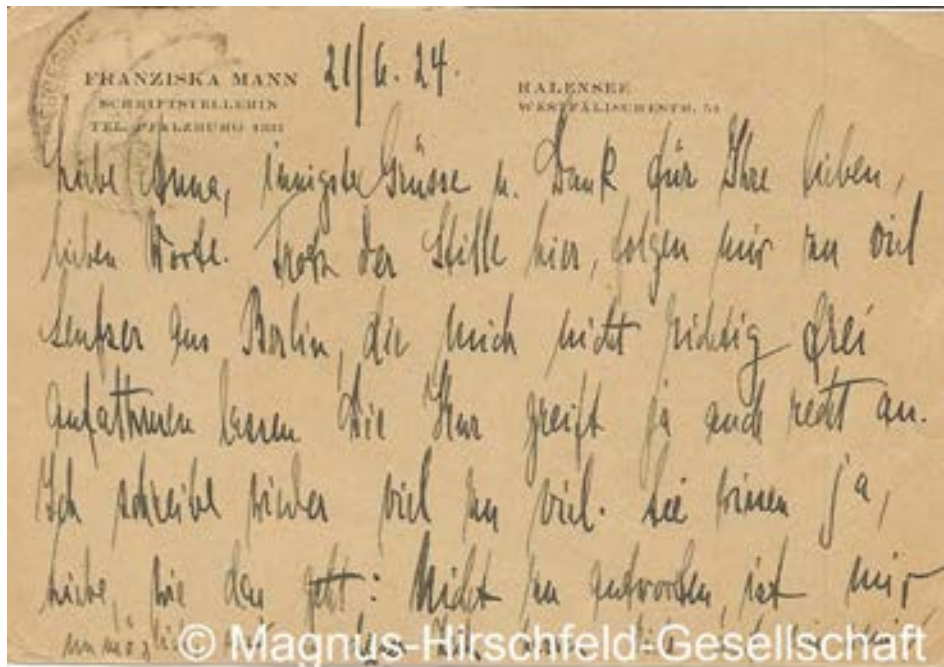 FRANZISKA MANN
SCHRIFTSTELLERIN
TEL. PFALZBURG
21/6. 24.
HALENSEE
WESTFÄLISCHESTR.
Liebe Anna, innigste Grüsse u. Dank für Ihre lieben,
lieben Worte. Trotz der Stille hier, folgen mir zu viel
Seufzer aus Berlin, die mich nicht richtig frei
aufathmen lassen. Die Kur greift ja auch recht an.
Ich schreibe wieder viel zu viel. Sie wissen ja,
Liebe, wie das geht: Nicht zu antworten, ist mir
unmöglich
© Magnus-Hirschfeld-Gesellschaft